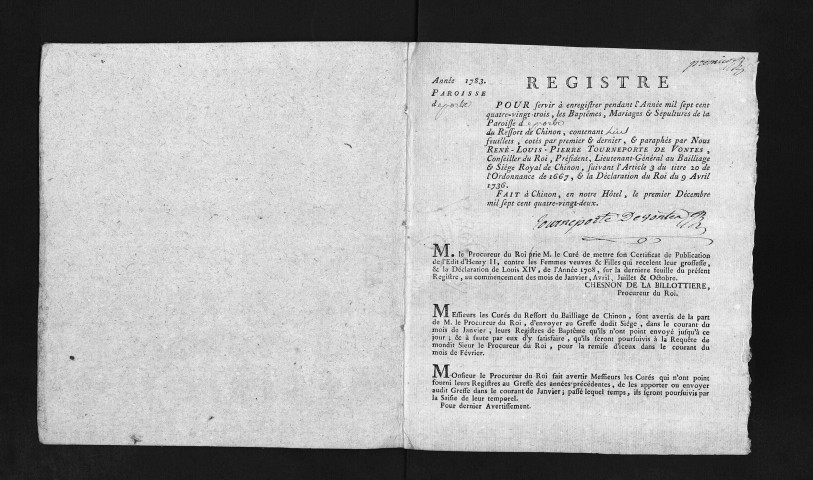 premier
Année 1783.
REGISTRE
PAROISSE
POUR servir à enregistrer pendant l'Année mil sept cent
quatre-vingt-trois, les Baptêmes, Mariages & Sépultures de la
Paroisse d
du Ressort de Chinon, contenant
feuillets, cotés par premier & dernier, & paraphés par Nous
RENÉ-LOUIS-PIERRE TOURNEPORTE DE VONTES,
Conseiller du Roi, Président, Lieutenant-Général au Bailliage
& Siége Royal de Chinon, suivant l'Article 3 du titre 20 de
l'Ordonnance de 1667, & la Déclaration du Roi du 9 Avril
1736.
FAIT à Chinon, en notre Hôtel, le premier Décembre
mil sept cent quatre-vingt-deux.
Tourneporte De vontes
M. le Procureur du Roi prie M. le Curé de mettre son Certificat de Publication
de l'Edit d'Henry II, contre les Femmes veuves & Filles qui recelent leur grossesse,
& la Déclaration de Louis XIV, de l'Année 1708, sur la derniere feuille du présent
Registre, au commencement des mois de Janvier, Avril, Juillet & Octobre.
CHESNON DE LA BILLOTTIERE,
Procureur du Roi.
MEssieurs les Curés du Ressort du Bailliage de Chinon, sont avertis de la part
de M. le Procureur du Roi, d'envoyer au Greffe dudit Siége, dans le courant du
mois de Janvier, leurs Registres de Baptême qu'ils n'ont point envoyé jusqu'à ce
jour; & à faute par eux d'y satisfaire, qu'ils seront poursuivis à la Requête de
mondit Sieur le Procureur du Roi, pour la remise d'iceux dans le courant du
mois de Février.
MOnsieur le Procureur du Roi fait avertir Messieurs les Curés qui n'ont point
fourni leurs Registres au Greffe des années précédentes, de les apporter ou envoyer
audit Greffe dans le courant de Janvier; passé lequel temps, ils seront poursuivis par
la Saisie de leur temporel.
Pour dernier Avertissement.